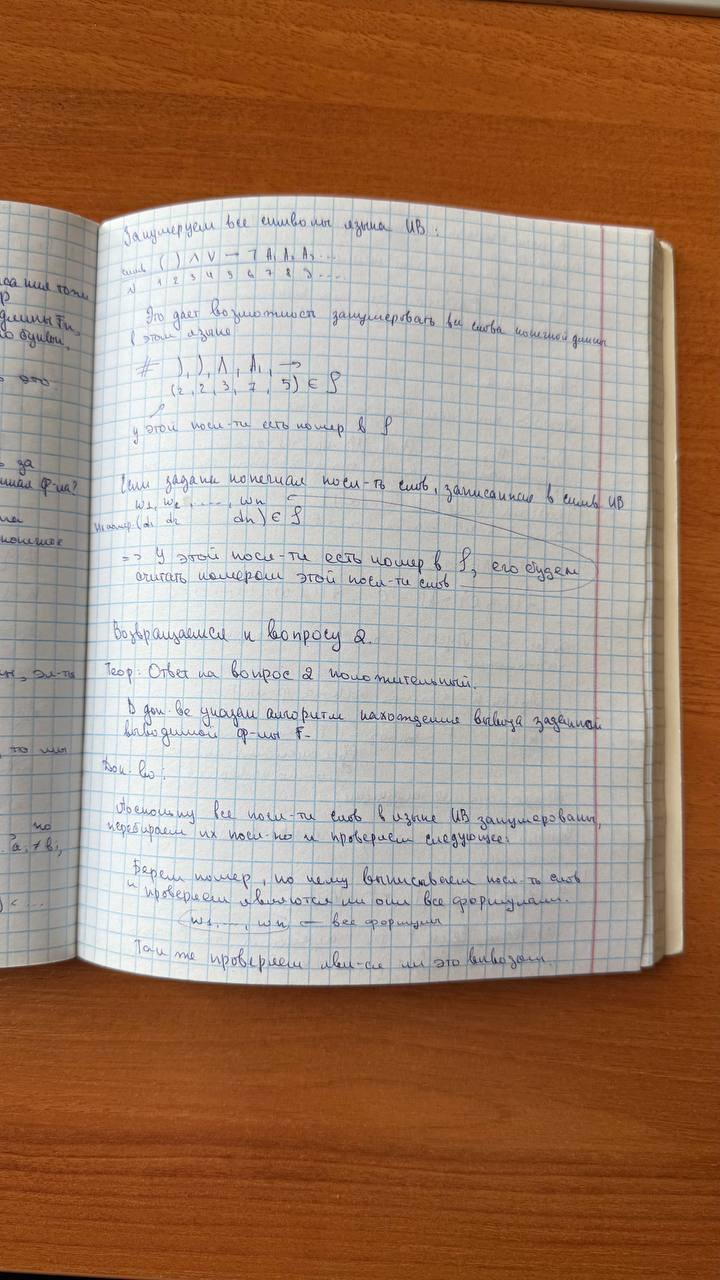 ноя
Р
длины
буквы,
это
за
ф-ла?
эл-ты
то мы
но
Занумеруем все символы языка ИВ:
симв ( ) ∧ ∨ → ¬ A₁ A₂ A₃ ...
N 1 2 3 4 5 6 7 8 9 ....
Это дает возможность занумеровать все слова конечной длины
в этом языке
# ), ), ∧, A₁, →
(2, 2, 3, 7, 5) ∈ S
у этой посл-ти есть номер в S
Если задана конечная посл-ть слов, записанных в симв ИВ
w₁, w₂, ....., wn
Их номер. (d₁ d₂ dn) ∈ S
=> У этой посл-ти есть номер в S, его будем
считать номером этой посл-ти слов
Возвращаемся к вопросу 2.
Теор: Ответ на вопрос 2 положительный.
В док-ве укажем алгоритм нахождения вывода заданной
выводимой ф-мы F.
Док-во:
Поскольку все посл-ти слов в языке ИВ занумерованы,
перебираем их посл-но и проверяем следующее:
Берем номер, по нему выписываем посл-ть слов
и проверяем являются ли они все формулами.
w₁, ..., wn — все формулы
Так же проверяем явл-ся ли это выводом.